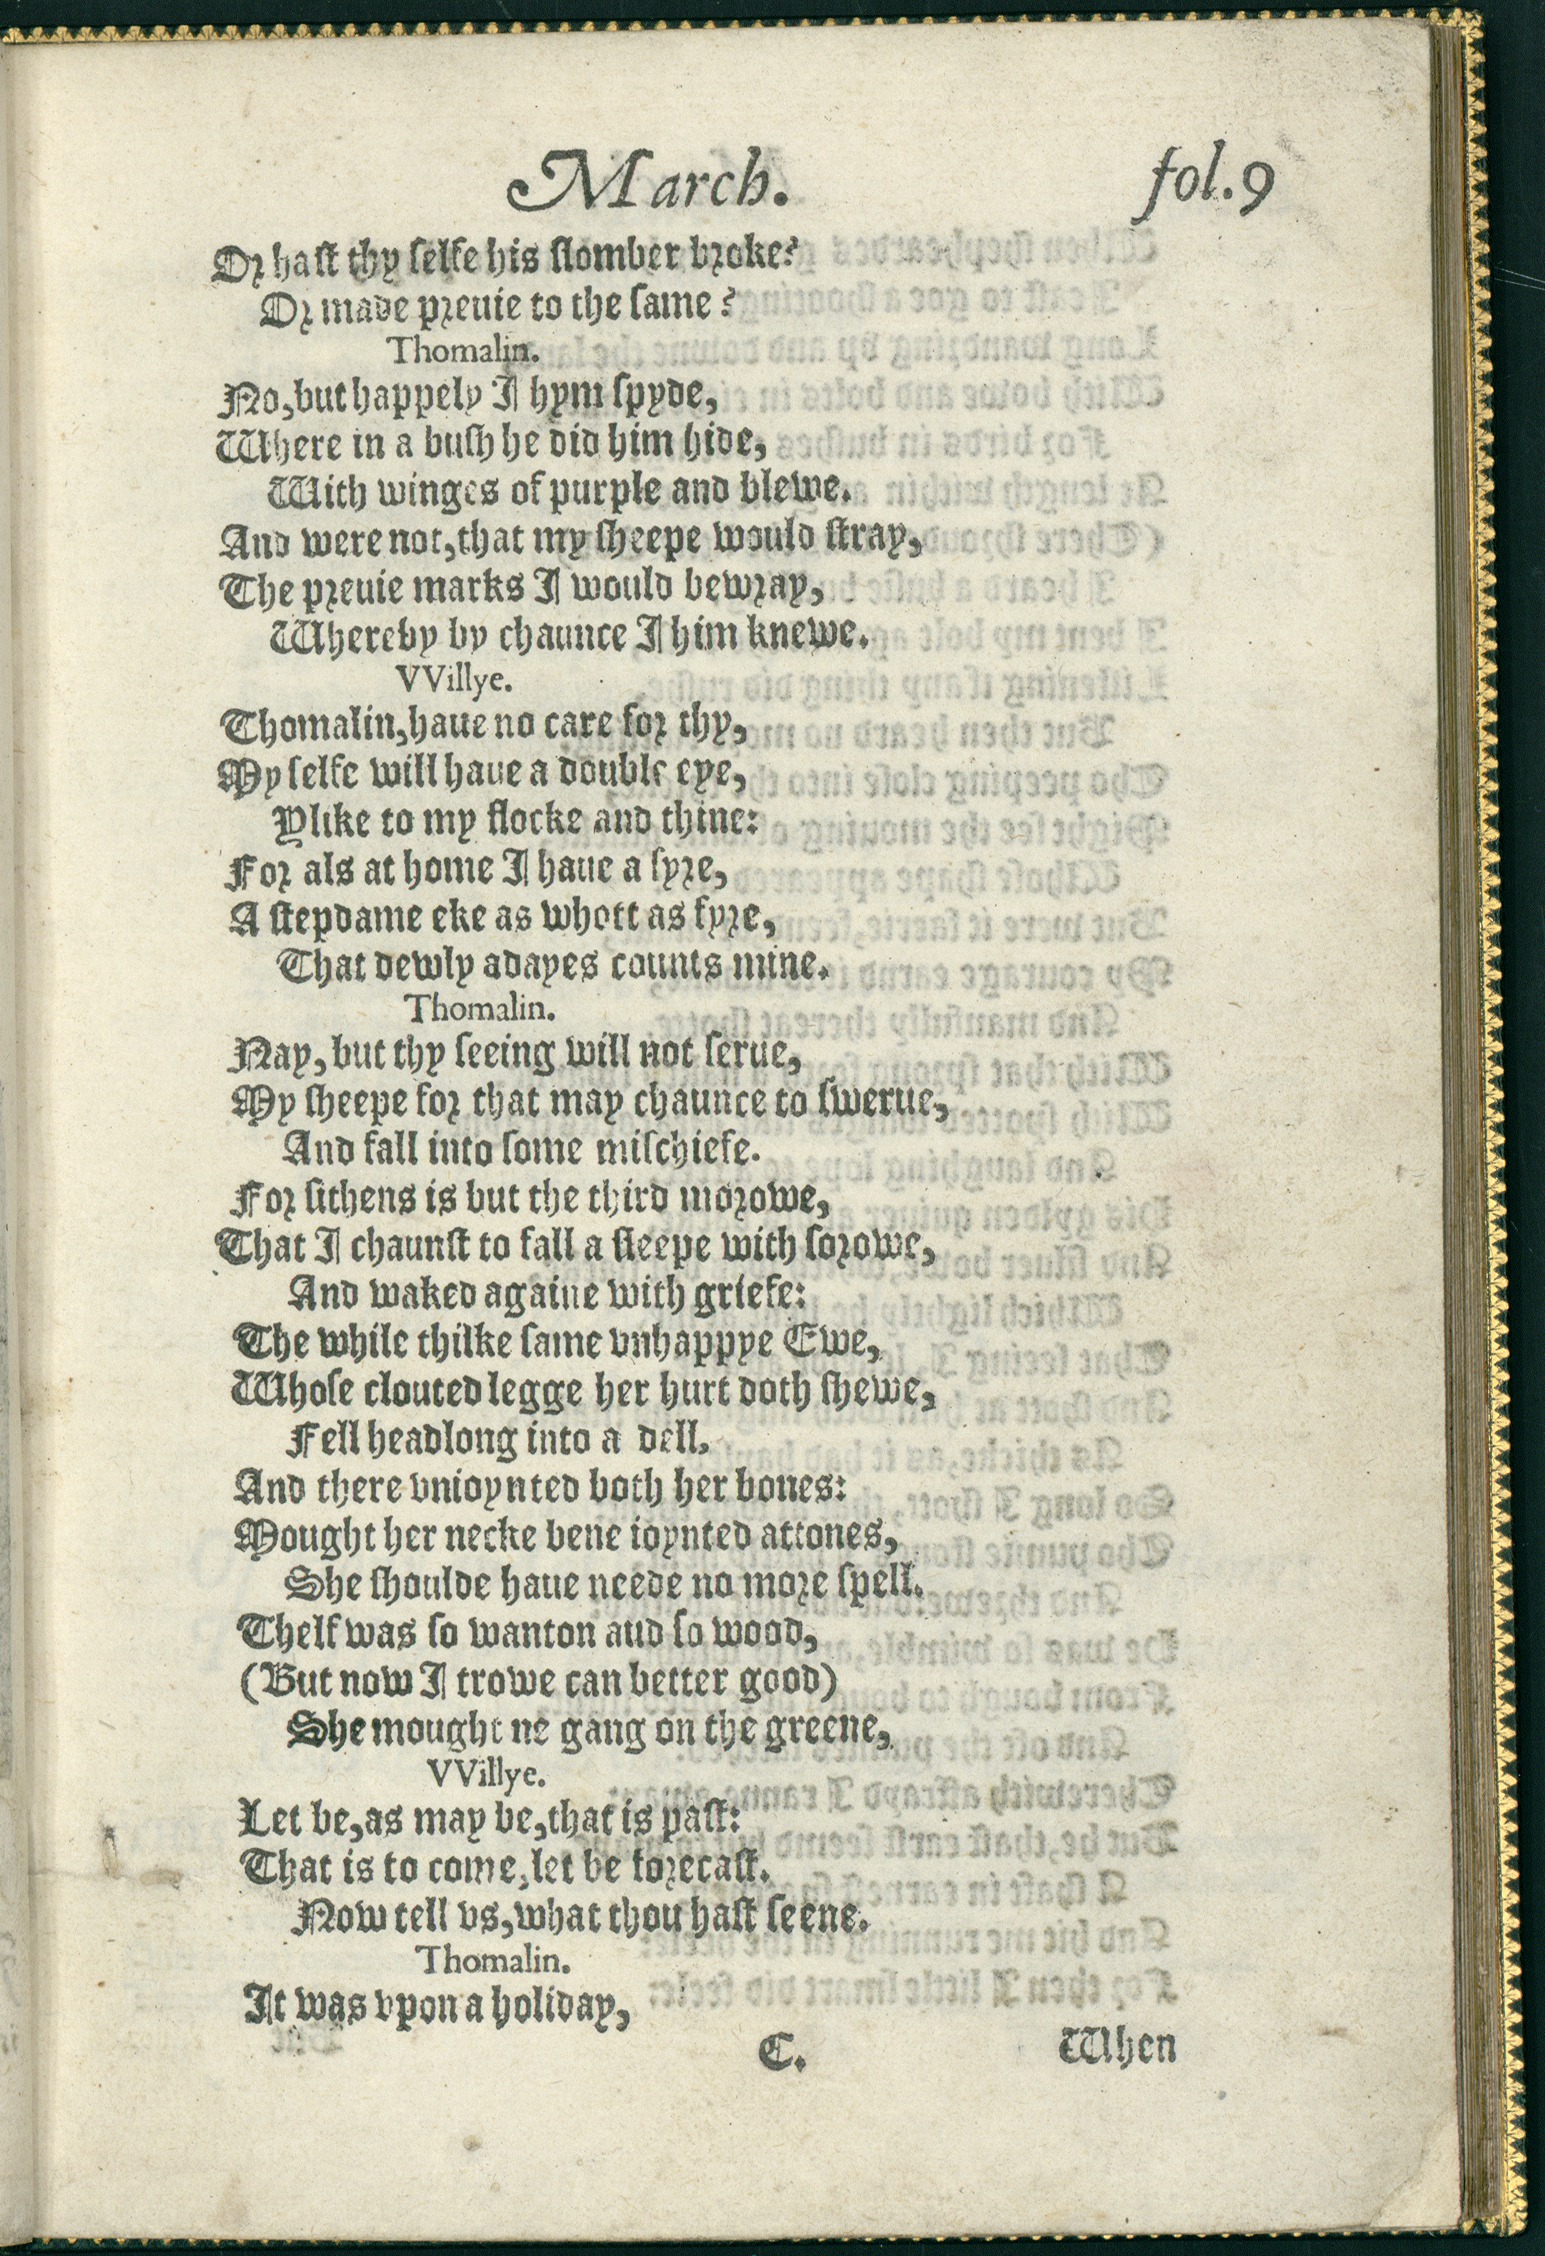 March. fol.9
Or hast thy selfe his slomber broke?
Or made preuie to the same?
Thomalin.
No, but happely I hym spyde,
Where in a bush he did him hide,
With winges of purple and blewe.
And were not, that my sheepe would stray,
The preuie marks I would bewray,
Whereby by chaunce I him knewe.
VVillye.
Thomalin, haue no care for thy,
My selfe will haue a double eye,
Ylike to my flocke and thine:
For als at home I haue a syre,
A stepdame eke as whott as fyre,
That dewly adayes counts mine.
Thomalin.
Nay, but thy seeing will not serue,
My sheepe for that may chaunce to swerue,
And fall into some mischiefe.
For sithens is but the third morowe,
That I chaunst to fall a sleepe with sorowe,
And waked againe with griefe:
The while thilke same vnhappye Ewe,
Whose clouted legge her hurt doth shewe,
Fell headlong into a dell.
And there vnioynted both her bones:
Mought her necke bene ioynted attones,
She shoulde haue neede no more spell.
Thelf was so wanton aud so wood,
(But now I trowe can better good)
She mought ne gang on the greene,
VVillye.
Let be, as may be, that is past:
That is to come, let be forecast.
Now tell vs, what thou hast seene.
Thomalin.
It was vpon a holiday,
C. When